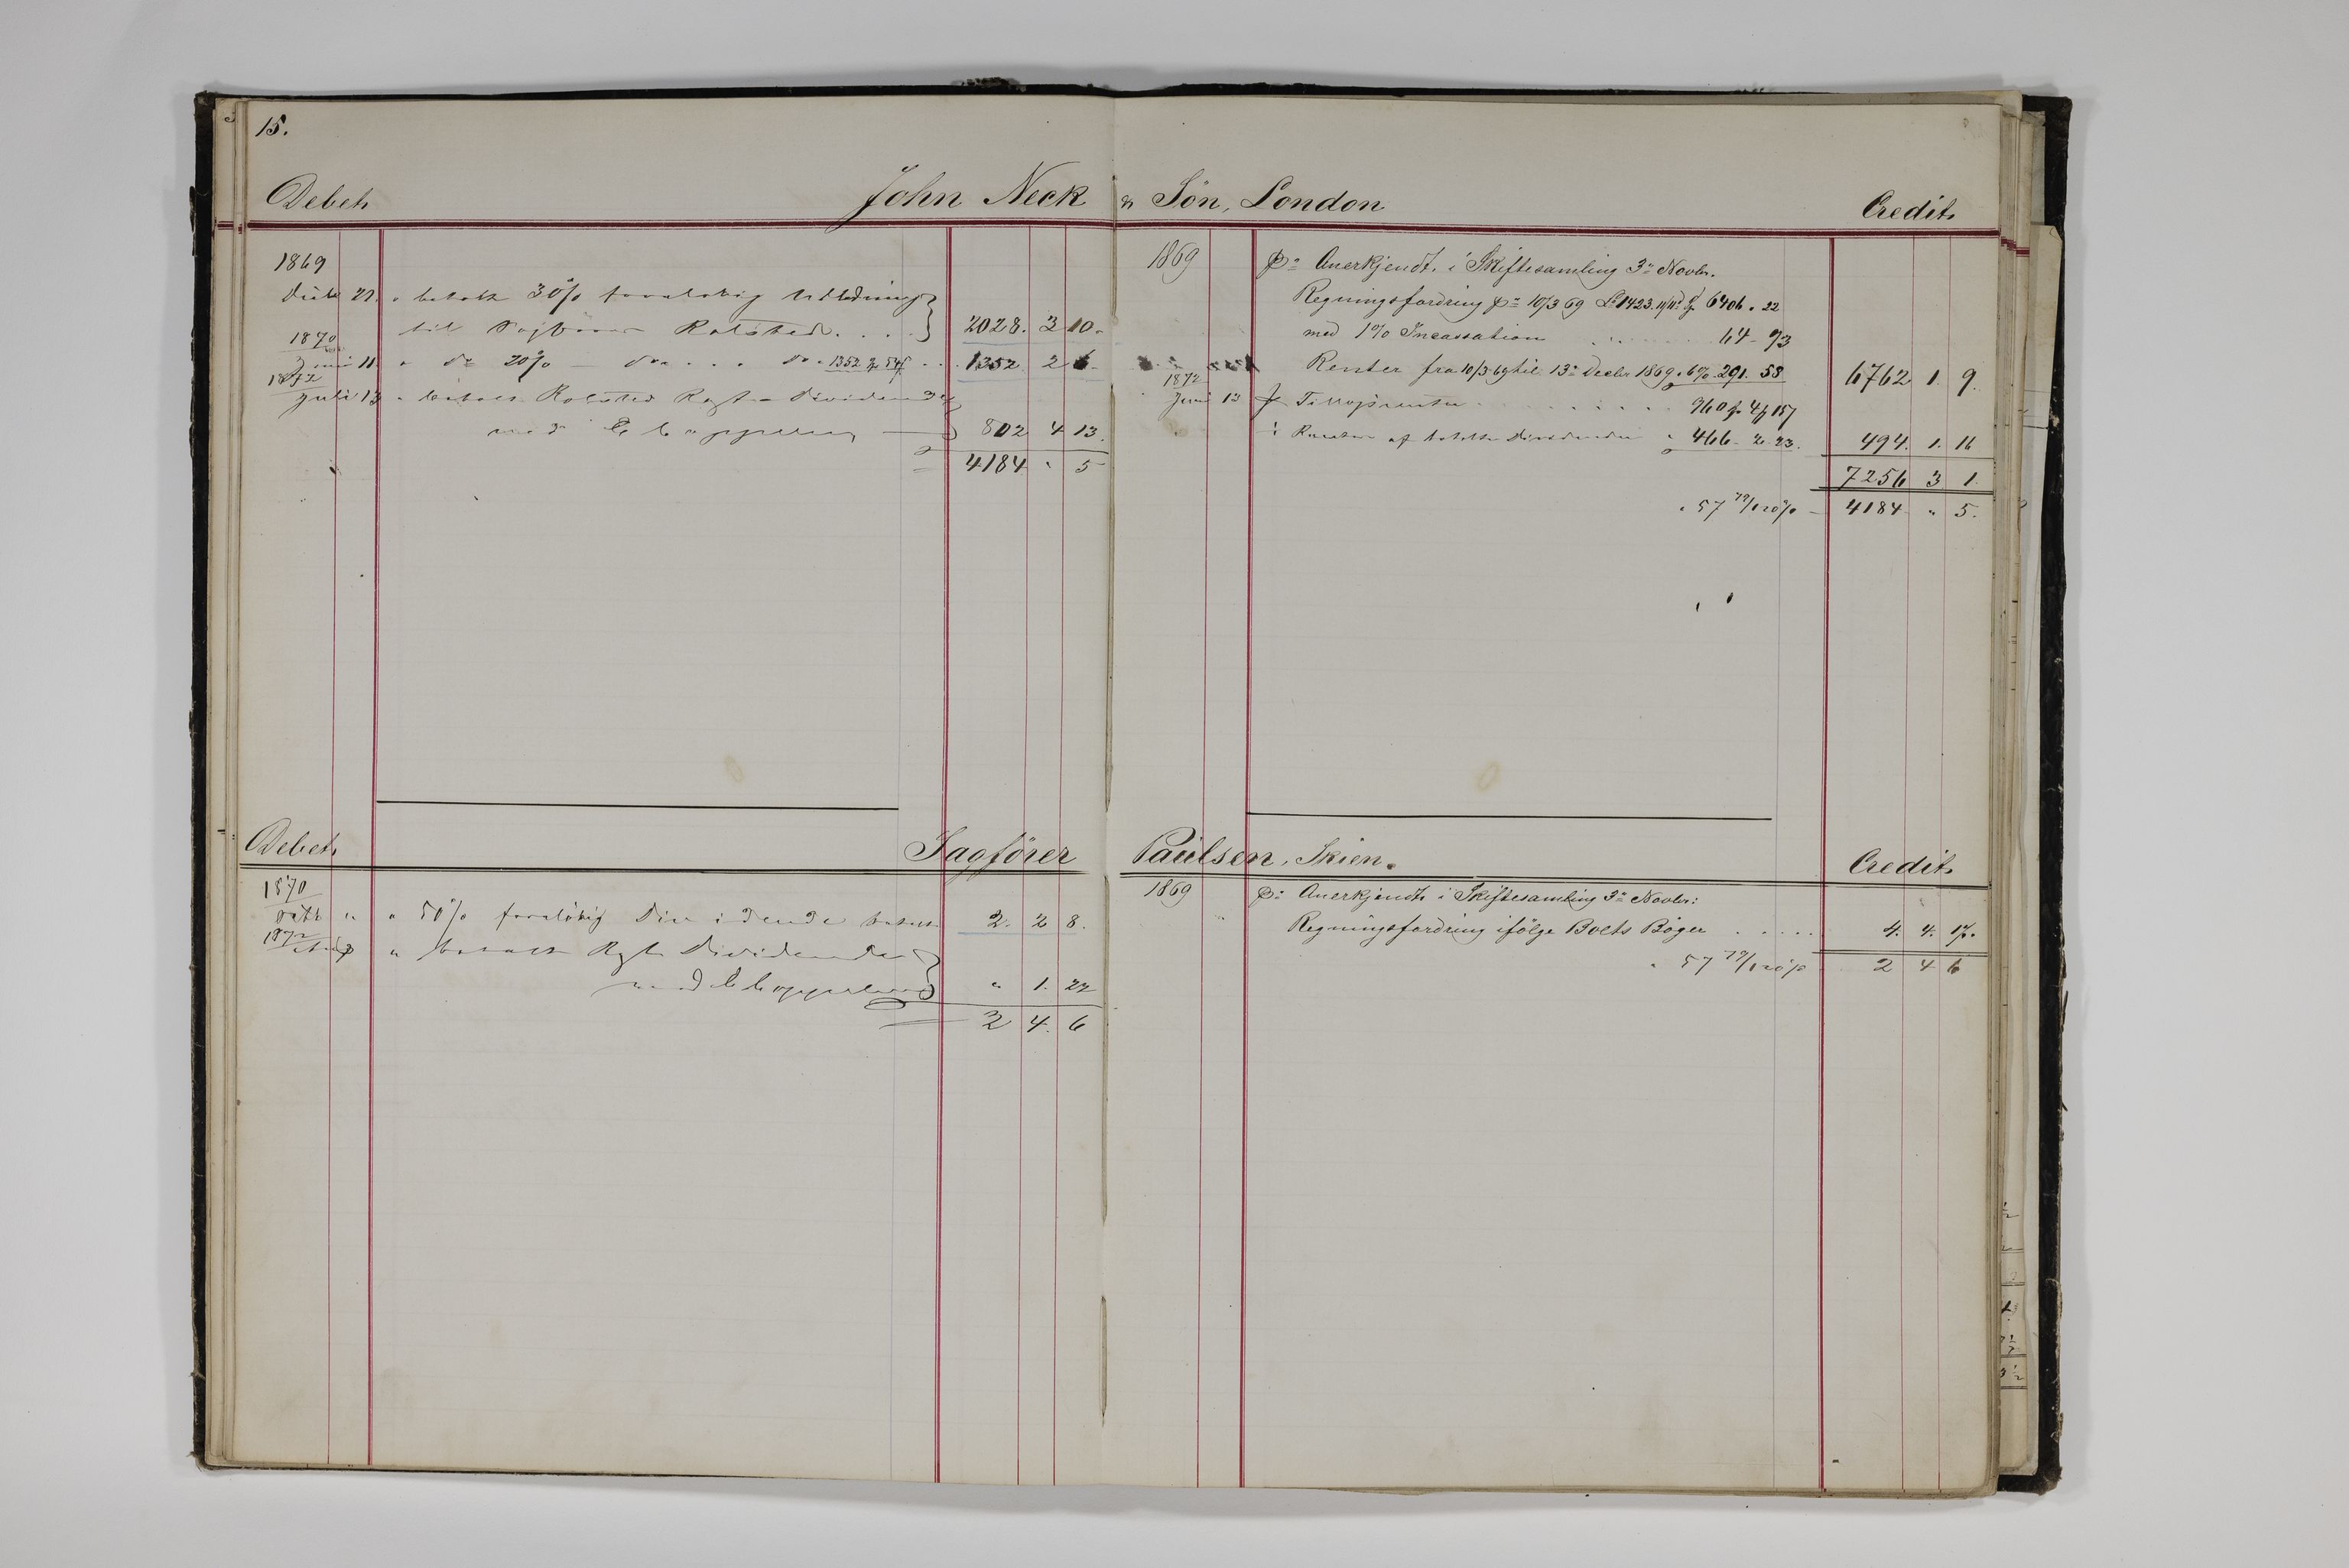 15.
Debet John Neck & Sön, London Credit
1869
Decbr 21. " betalt 30% foreløbig Udlodning
til Rolsted . . . 2028. 3 10.
1870
Juni 11. " do 20% — do . . . do . 1352 . . 1352 2 6.
1872
Juli 13 " betalt Rolsted Rest-Dividende
med 802 4 13.
4184 " 5
1869 pr Anerkjendt i Skiftesamling 3 Novbr.
Regningsfordring pr 10/3 69 £ 1423. 6406 . 22
med 1% Incassation . . . . . 64 - 93
Renter fra 10/3 69 til 13 Decbr 1869 . 6% . 291. 58 6762 1. 9.
1872
Juni 13 . . . . . . . 960 4 15
÷ Renter af betalte Dividender " 466 - 2. 23. 494. 1. 16
7256 3 1.
" 57 79/120% — 4184 " 5.
Debet Sagförer Paulsen, Skien. Credit
1870
" " 50% foreløbig Dividende betalt 2. 2 8.
1872
" betalt Rest Dividende
med " 1. 22
2 4. 6
1869 pr Anerkjendt i Skiftesamling 3 Novbr:
Regningsfordring ifölge Boets Böger . . . . . 4. 4. 17.
" 57 79/120% 2 4 6